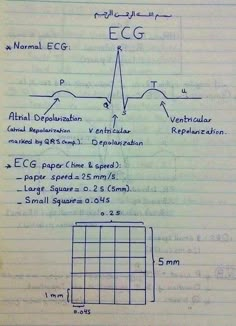 بسم الله الرحمن الرحيم
ECG
* Normal ECG:
R
P
T
u
Q
S
Atrial Depolarization
(atrial Repolarization
marked by QRS comp.)
Ventricular
Depolarization
Ventricular
Repolarization.
* ECG paper (time & speed):
- paper speed = 25 mm/s.
- Large Square = 0.2 s (5mm)
- Small square = 0.04s
0.2s
5 mm
1 mm
0.04s